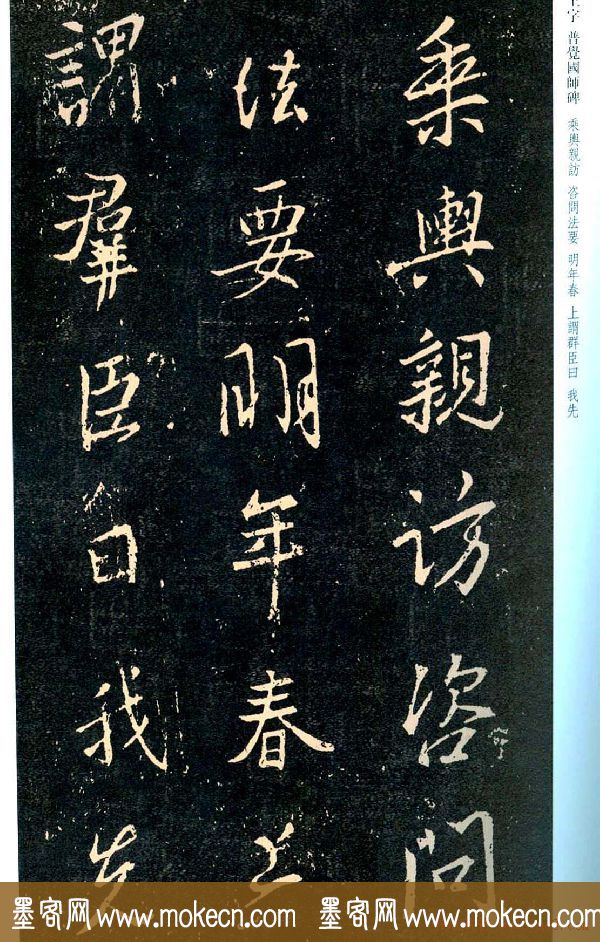 乘輿親訪咨問
法要明年春上
謂羣臣曰我先
王字 普覺國師碑 乘輿親訪 咨問法要 明年春 上謂群臣曰 我先
墨客网 www.mokecn.com 墨客网 www.mokecn.com